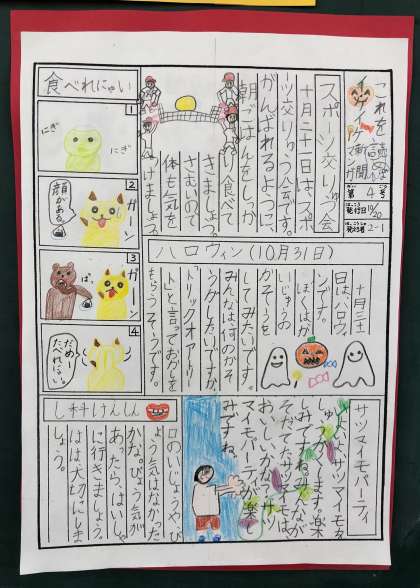 これを読め
イケイケ
新聞
シンブン
第4号
だい ごう
発行日10/20
発行者2-1
スポーツ交りゅう会
十月三十一日は、スポ
ーツ交りゅう会です。
がんばれるように、
朝ごはんをしっか
り食べて
きましょう。
さむいので
体も気を
つけましょう。
食べれにゃい
1
にぎ
にぎ
2
ガーン
顔がある。
3
ガーン
ぱっ
4
だめー
たべれにゃい。
ハロウィン(10月31日)
十月三十一
日は、ハロウィ
ンです。
ぼくは、が
いじゅうの
かそうを
してみたいです。
みんなは、何のかそ
うがしたいですか。
「トリックオアトリー
ト」と言っておかしを
もらうそうです。
サツマイモパーティ
いよいよサツマイモを
しゅうかくします。楽
しみですね。みんなが
そだてたサツマイモは、
おいしいかな?サツ
マイモパーティが楽し
みですね。
し科けんしん
口のいじょうや、び
ょう気はなかった
かな。びょう気が
あったら、はいしゃ
に行きましょう。
はは大切にしま
しょう。